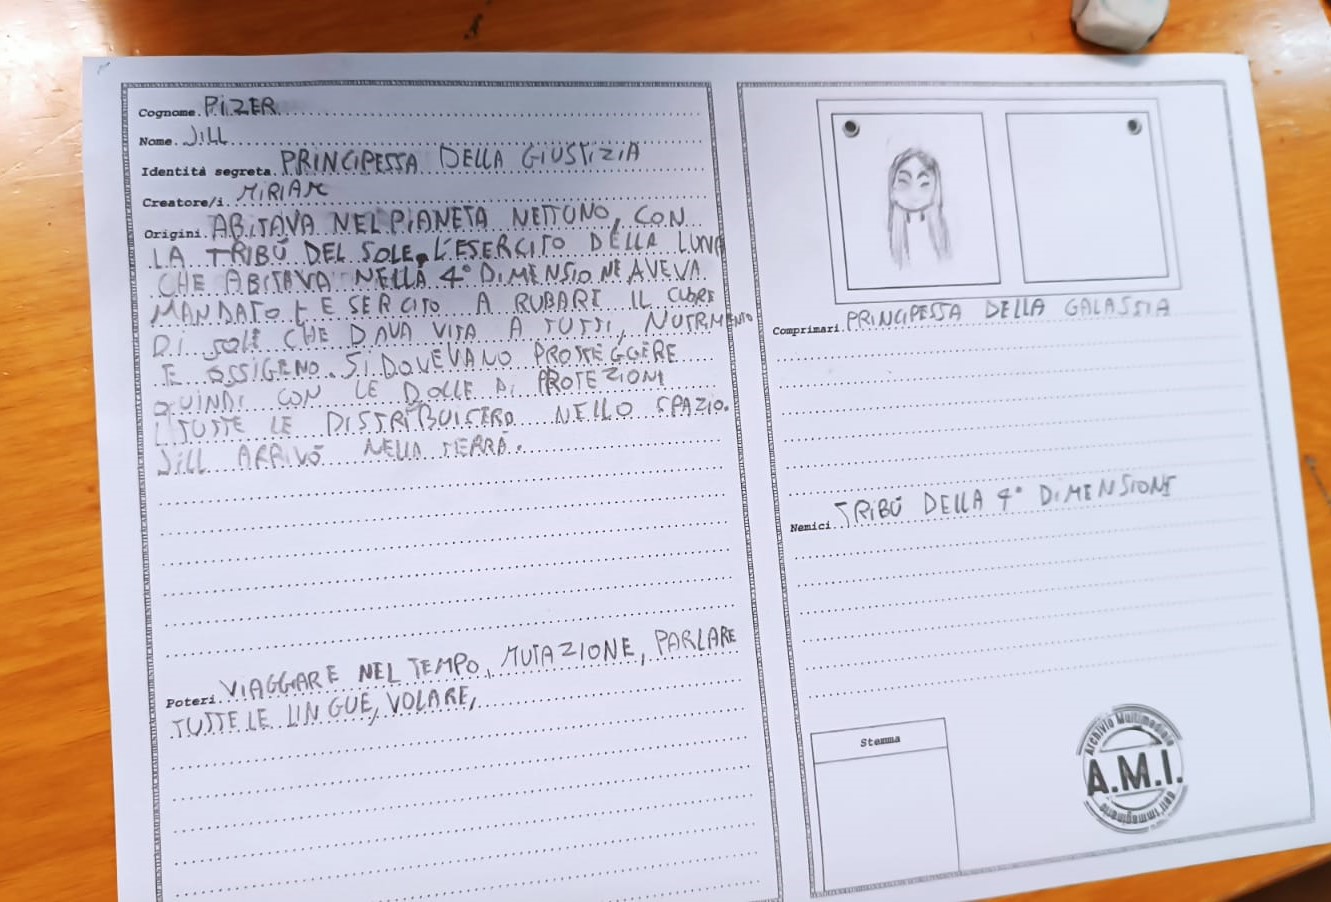 Cognome PIZER
Nome JILL
Identità segreta PRINCIPESSA DELLA GIUSTIZIA
Creatore/i MIRIAM
Origini ABITAVA NEL PIANETA NETTUNO, CON
LA TRIBÚ DEL SOLE, L'ESERCITO DELLA LUNA
CHE ABITAVA NELLA 4° DIMENSIONE AVEVA
MANDATO ESERCITO A RUBARE IL CUORE
DI SOLE CHE DAVA VITA A TUTTI, NUTRIMENTO
E OSSIGENO. SI DOVEVANO PROTEGGERE
QUINDI CON LE BOLLE DI PROTEZIONI
TUTTE LE DISTRIBUISERO NELLO SPAZIO.
JILL ARRIVÓ NELLA TERRA.
Poteri VIAGGARE NEL TEMPO, MUTAZIONE, PARLARE
TUTTE LE LINGUE, VOLARE,
Comprimari PRINCIPESSA DELLA GALASSIA
Nemici TRIBÚ DELLA 4° DIMENSIONE
Stemma
Archivio Multimediale
A.M.I.
dell'Immaginario